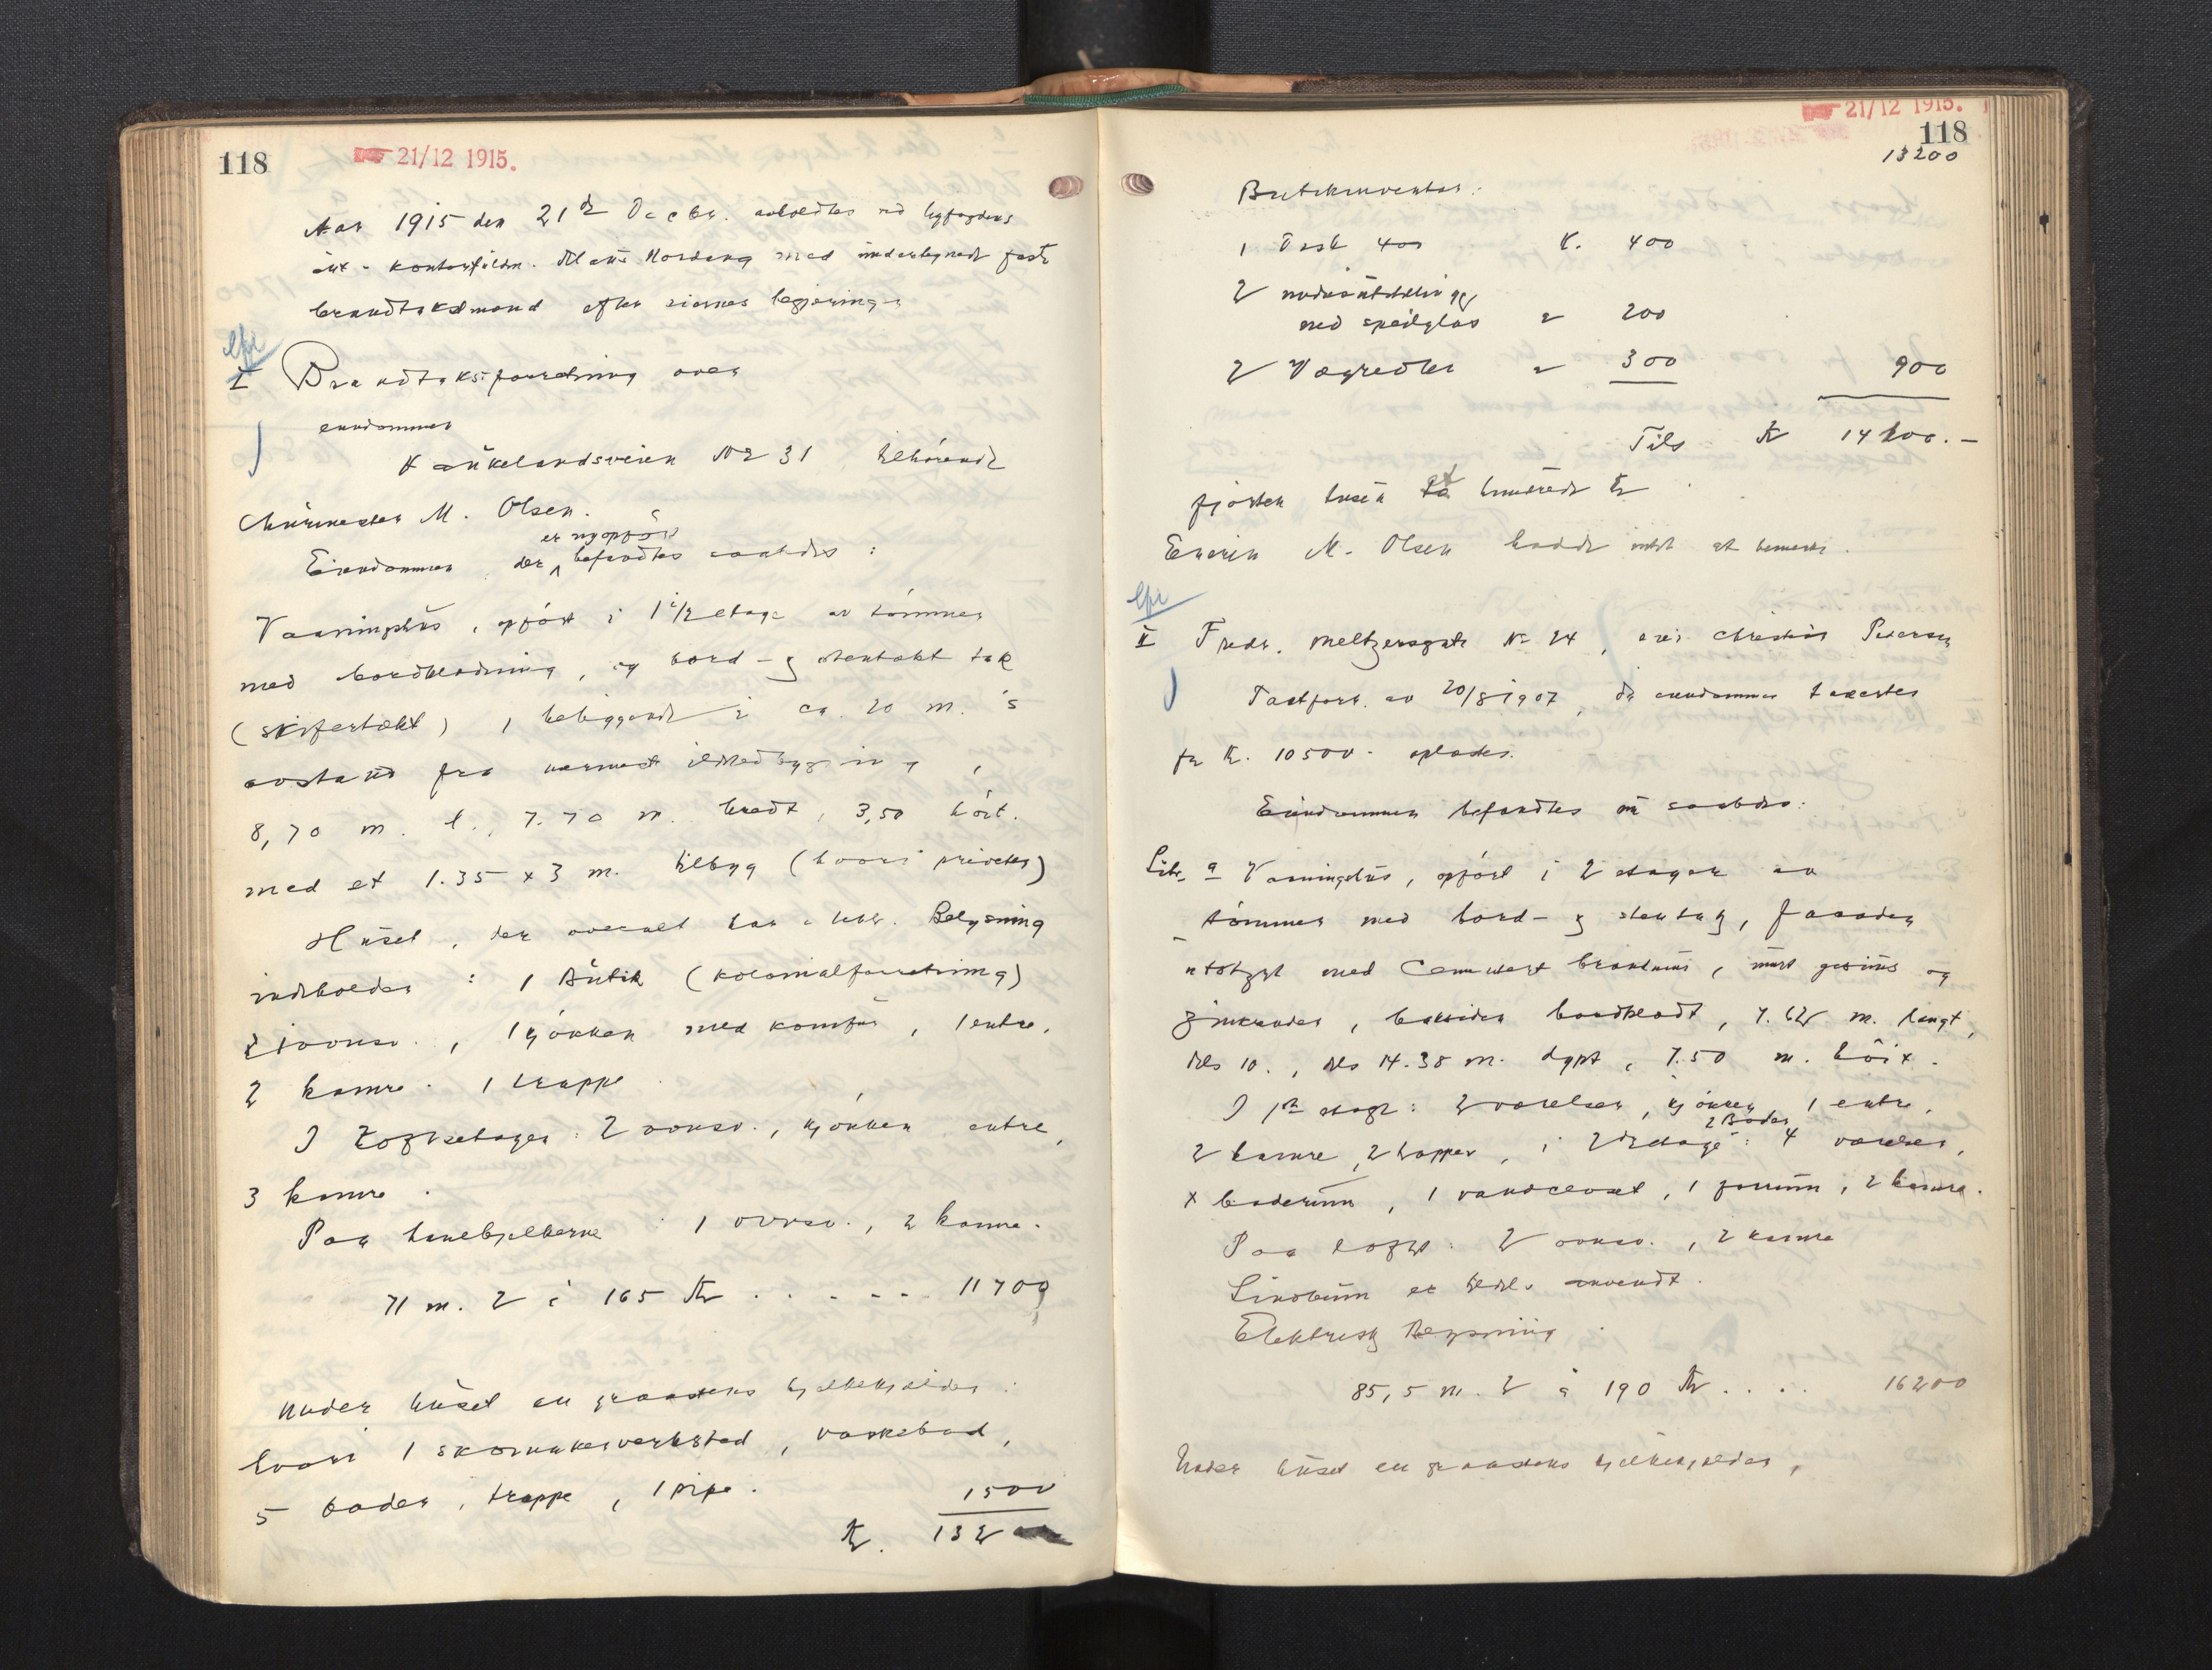 118
21/12 1915.
Aar 1915 den 21de Decbr. avholdtes ved byfogdens
kontorfuldm. Nordang med undertegnede faste
brandtakstmænd efter eiernes begjæring
Efr
I Brandtaksforretning over
eiendommen
Kaukelandsveien No 31 tilhørende
Murmester M. Olsen.
er nyopført
Eiendommen, der befandtes saaledes:
Vaaningshus, opført i 1 1/2 etage av tømmer
med bordklædning, og bord- og stentækt tak
(skifertækt), beliggende i ca. 20 m.'s
avstand fra nærmeste ildstedbygning,
8,70 m. l., 7.70 m. bredt, 3,50 høit.
med et 1.35 x 3 m. tilbyg (hvori priveter)
Huset, der overalt har elektr. Belysning
indeholder: 1 Butik (kolonialforretning)
2 ovnsv., 1 kjøkken med komfur, 1 entre,
2 kamre. 1 trappe.
I Loftsetagen: 2 ovnsv., kjøkken entre,
3 kamre.
Paa hanebjelkerne: 1 ovnsv., 2 kamre.
71 m. 2 à 165 Kr . . . . . . 11700
Under huset en graastens bjelkekjelder:
hvori 1 skomakerverksted, vaskebod,
5 boder, trappe, 1 pipe. 1500
Kr. 132
21/12 1915.
118
13200
Butikinventar:
1 Disk 400 K. 400
2
med speilglas " 200
2 Vægreoler " 300 900
Tils Kr 14100.-
fjorten tusen et hundrede Kr
Eieren M. Olsen hadde intet at bemerke.
Efr
II Fredr. Meltzersgate No 24, eier Christian Petersen
Taktforr. av 20/8 1907, da eiendommen takertes
for Kr. 10500.- oplæstes.
Eiendommen befandtes nu saaledes:
Litr. a Vaaningshus, opført i 2 etager av
tømmer med bord- og stentag, facaden
utstyrt med Cementert brandmur, muret gesims og
zinkrender, baksiden bordklædt, 7.62 m. langt,
dels 10., dels 14.38 m. dypt, 7.50 m. høit.
I 1ste etage: 2 værelser, kjøkken, 1 entre,
2 Boder
2 kamre, 2 trapper, i 2den etage: 4 værelser,
x baderum, 1 vandcloset, 1 forrum, 2 kamre.
Paa loftet: 2 ovnsv., 2 kamre
Linoleum er tildels anvendt.
Elektrisk Belysning.
85,5 m. 2 à 190 Kr . . . . 16200
Under huset en graastens bjelkekjelder,